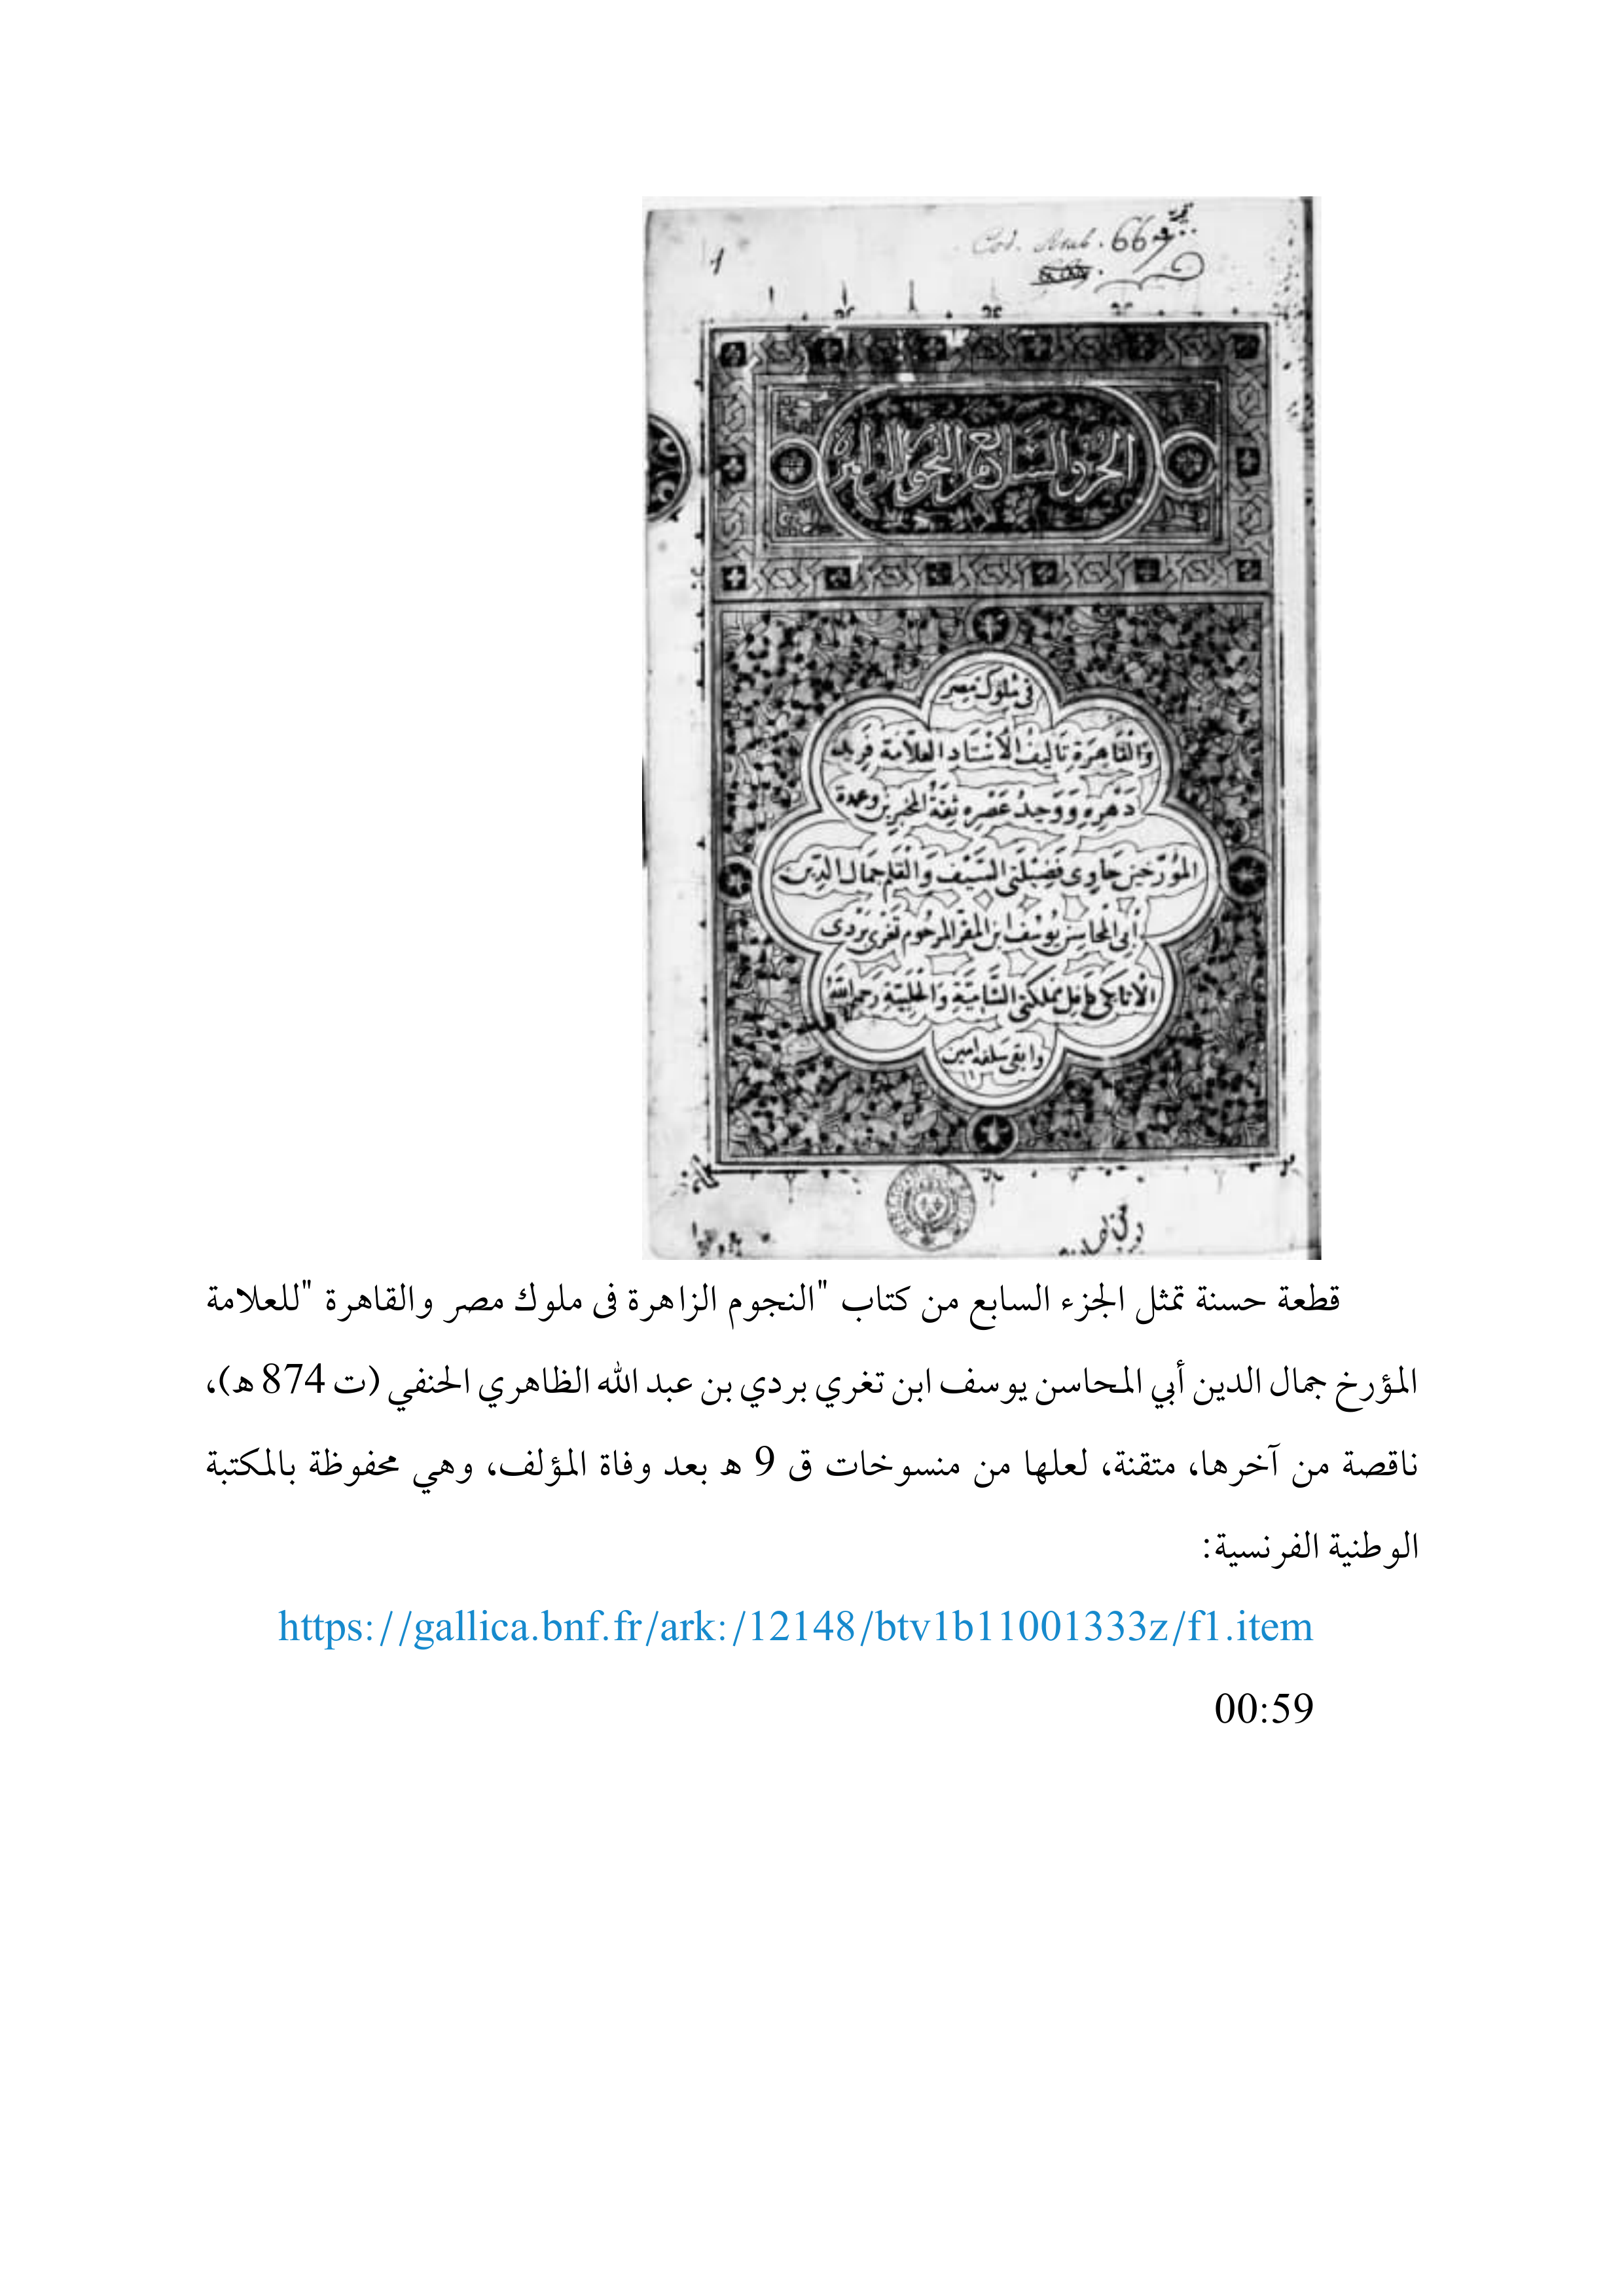 1
Cod. Arab. 669
الجزو السابع من النجوم الزاهره
في ملوك مصر
وَالْقَاهِرَةِ تَاليفُ الْأُسْتَاد العلّامَة فَرِيد
دَهْرِهِ وَوَحِيدُ عَصْرِهِ ثِقَةُ المخبرين وعمدة
المُؤرّخين حَاوِى فَضِيْلَتَى السَّيْف وَالْقَلم جمَال الدّين
أَبى المحاسِن يُوسُف ابن المقرّ المرحُوم تَغْرى بَرْدى
الأتابكى كافل مملكتى الشَّامِيَّة وَالحَلَبِيَّةِ رَحمهُ اللَّهُ
وابقى سلفه امين
قطعة حسنة تمثل الجزء السابع من كتاب "النجوم الزاهرة فى ملوك مصر والقاهرة "للعلامة
المؤرخ جمال الدين أبي المحاسن يوسف ابن تغري بردي بن عبد الله الظاهري الحنفي (ت 874 ه)،
ناقصة من آخرها، متقنة، لعلها من منسوخات ق 9 ه بعد وفاة المؤلف، وهي محفوظة بالمكتبة
الوطنية الفرنسية:
https://gallica.bnf.fr/ark:/12148/btv1b11001333z/f1.item
00:59